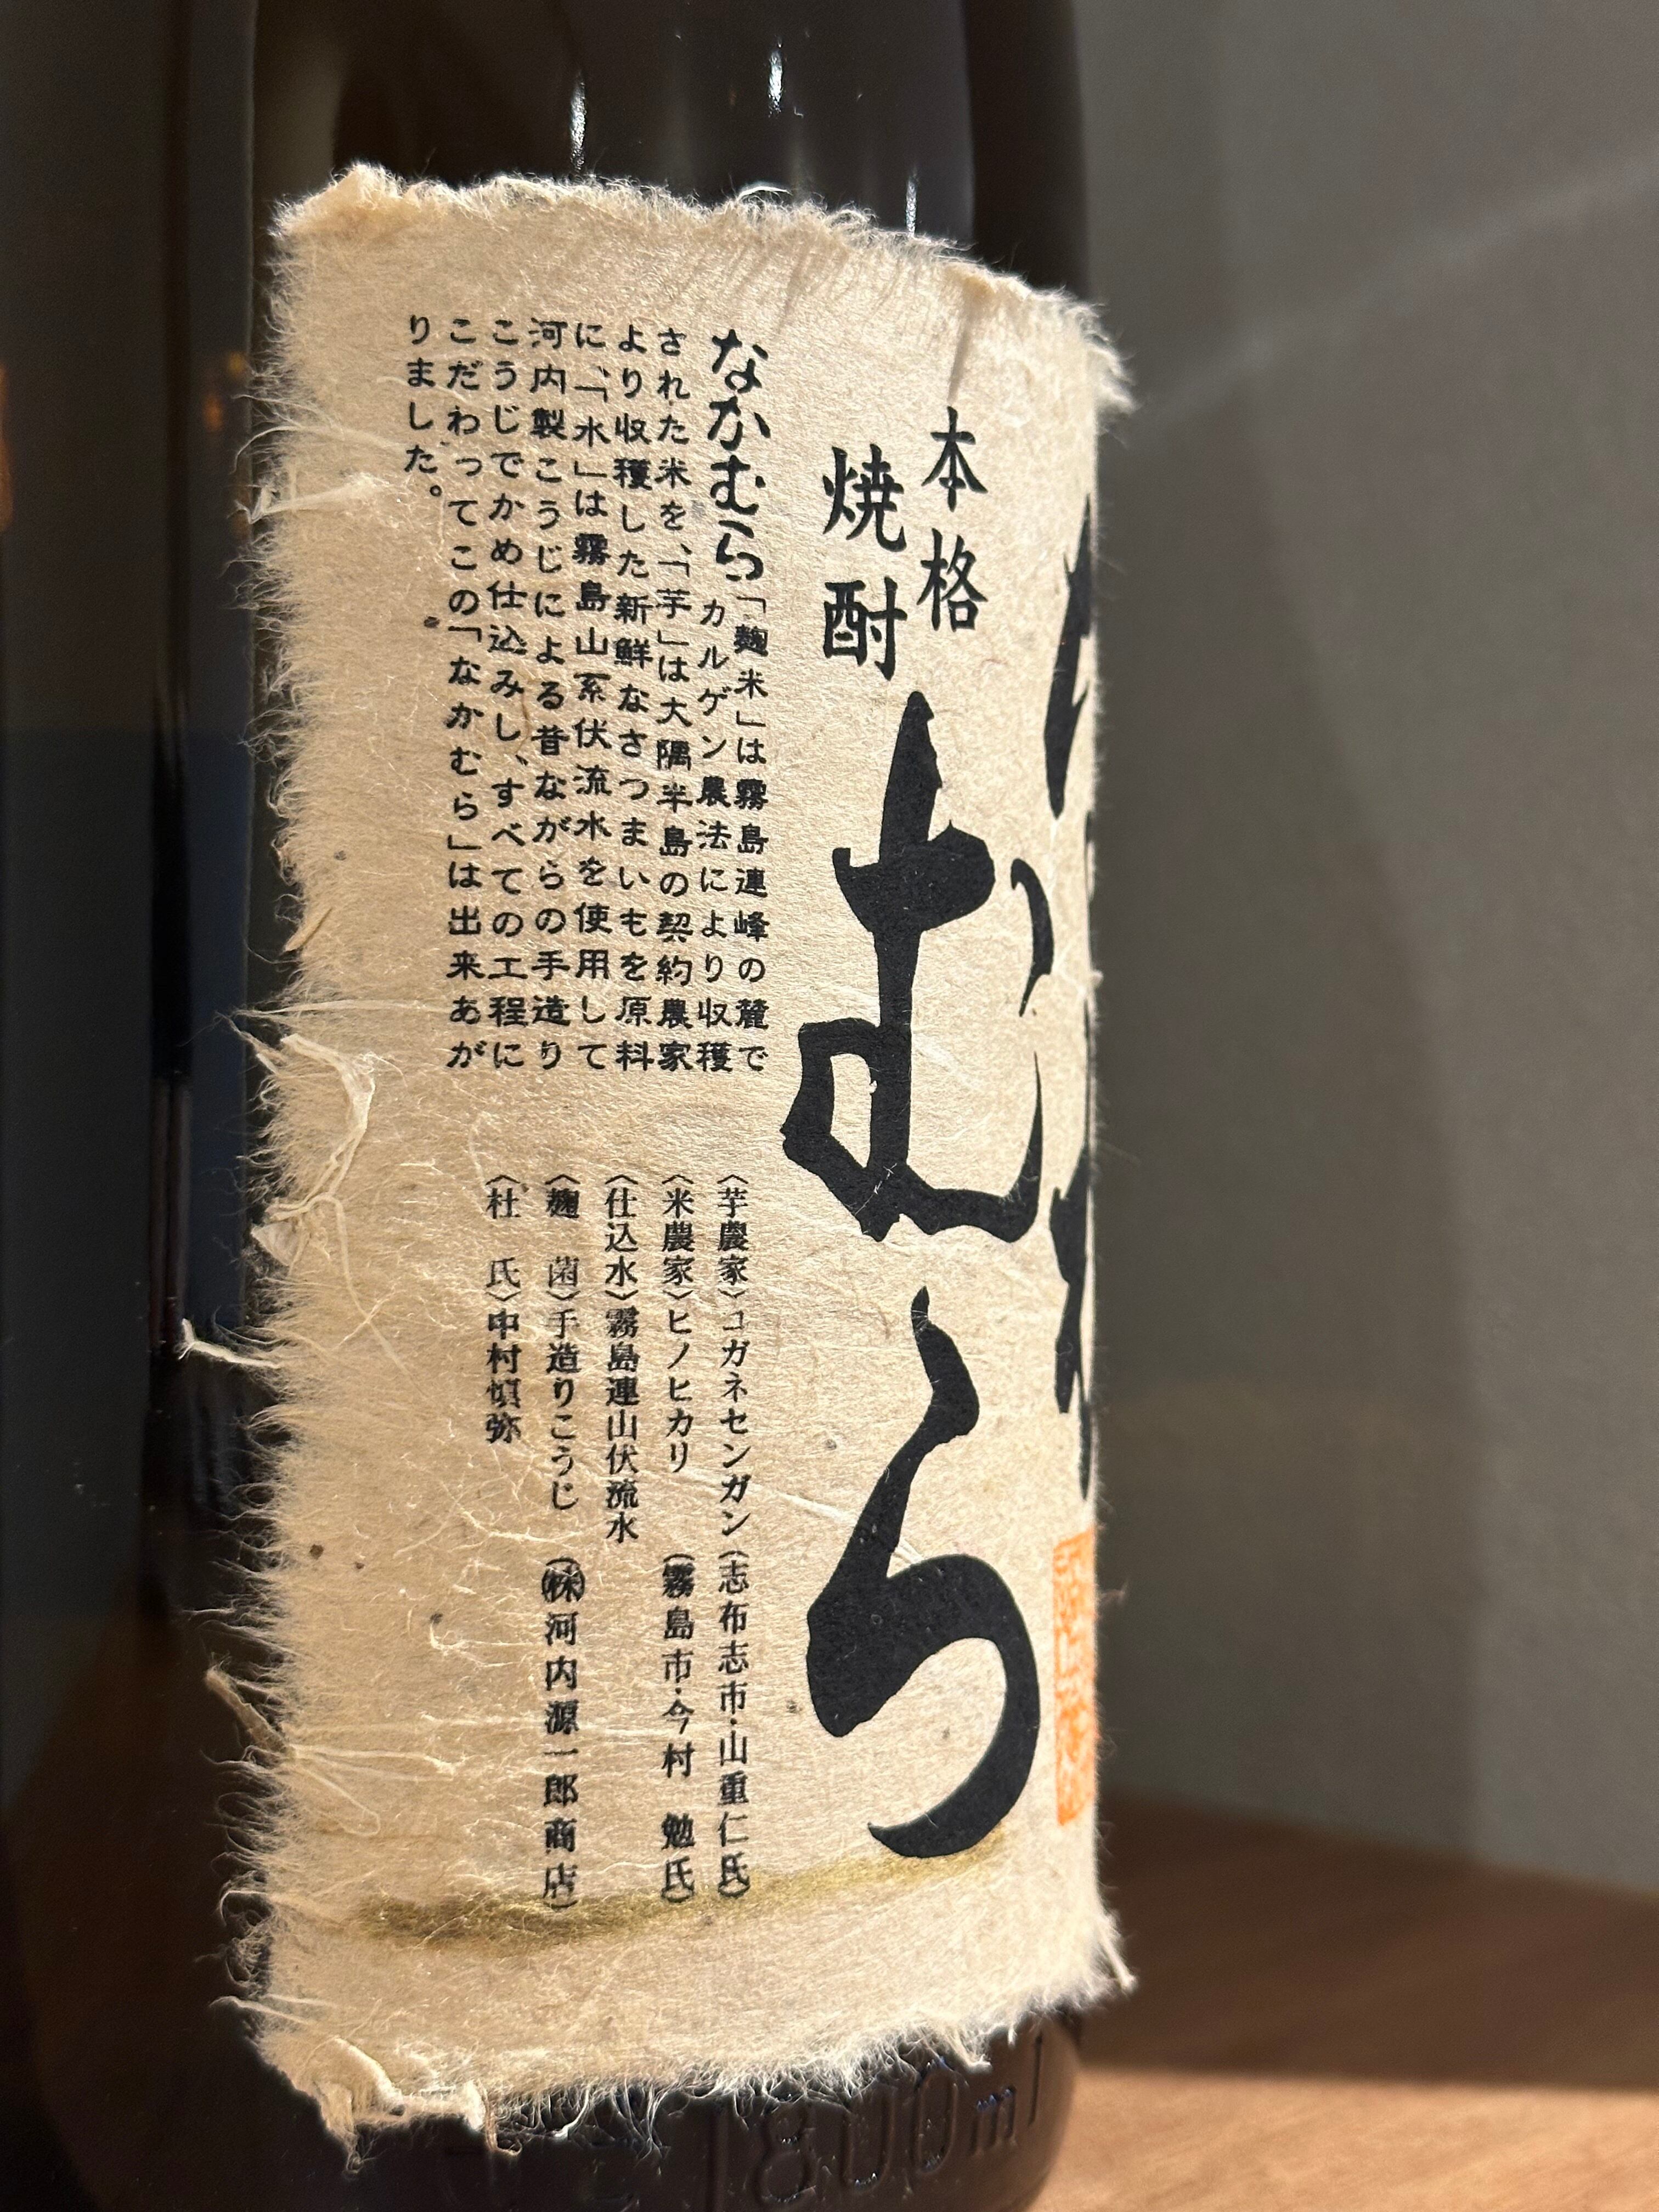 本格
焼酎
むら
なかむら「麹米」は霧島連峰の麓で
カルゲン農法により収穫
された米を、「芋」は大隅半島の契約農家
より収穫した新鮮なさつまいもを原料
に、「水」は霧島山系伏流水を使用して
河内製こうじによる昔ながらの手造り
こうじでかめ仕込みし、すべての工程に
こだわってこの「なかむら」は出来あが
りました。
〈芋農家〉コガネセンガン(志布志市・山重仁氏)
〈米農家〉ヒノヒカリ(霧島市・今村 勉氏)
〈仕込水〉霧島連山伏流水
〈麹 菌〉手造りこうじ(㈱河内源一郎商店)
〈杜 氏〉中村慎弥
1800ml